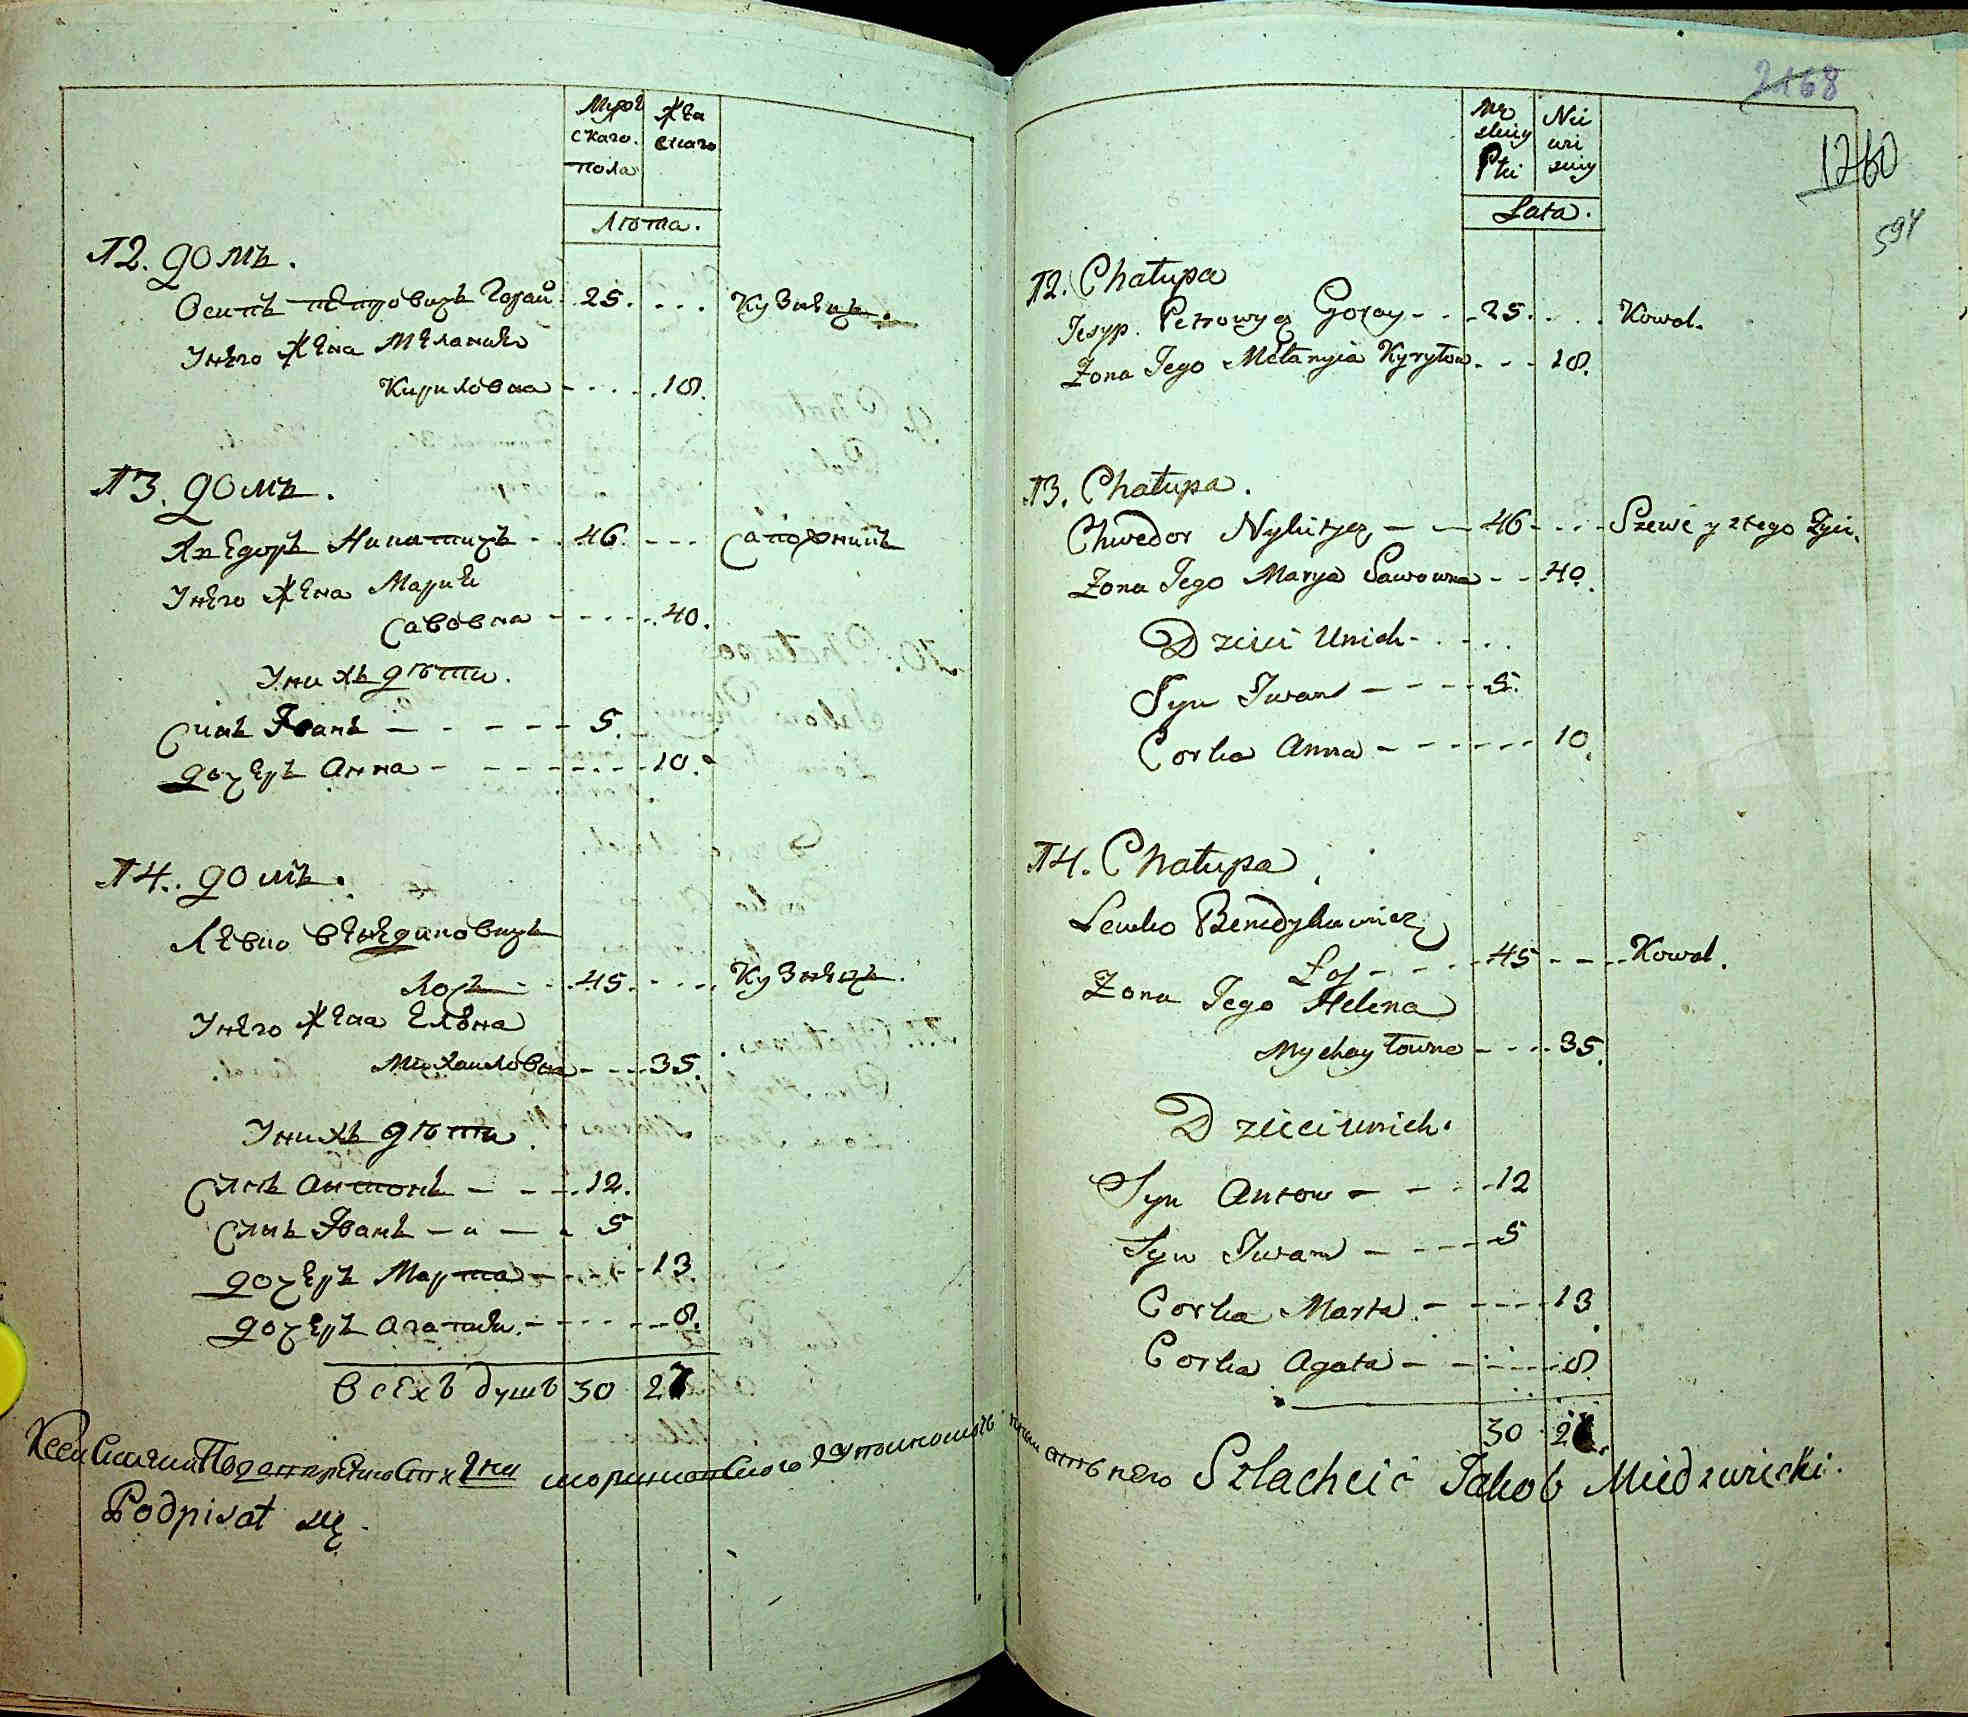 Мужескаго пола
Женскаго
Лѣта.
12. домъ.
Осипъ петровичъ Горай 25. Кузнецъ.
Унего Жена Мелания
Кириловна 18.
13. домъ.
Хведоръ Никитичъ 46. Сапожникъ
Унего Жена Мария
Савовна 40.
Унихъ дѣти.
Синъ Иванъ 5.
дочерь Анна 10.
14. домъ.
Левко Венедиковичъ
Лось 45. Кузнецъ.
Унего Жена Елена
Михаиловна 35.
Унихъ дѣти
Синъ Антонъ 12.
Синъ Иванъ 5
дочерь Марта 13.
дочерь Агатия 8.
Всехъ душъ 30 27
2168
1260
594
Męzkiey Płci
Niewiesciey
Lata.
12. Chałupa
Jesyp. Petrowycz Goray 25. Kowal.
Żona Jego Mełanyia Kyryłow 18.
13. Chałupa.
Chwedor Nykityez 46 Szewc y ztego Żyie.
Żona Jego Marya Sawowna 40.
Dzieci Unich
Syn Iwan 5.
Corka Anna 10.
14. Chałupa
Lewko Benedykowicz
Łoś 45 Kowal.
Zona Jego Helena
Mychayłowna 35.
Dzieci unich.
Syn Anton 12
Syn Iwan 5
Corka Marta 13
Corka Agata 8.
30 27.
Szlachcic Jakob Miedzwiecki.
Podpisał się.